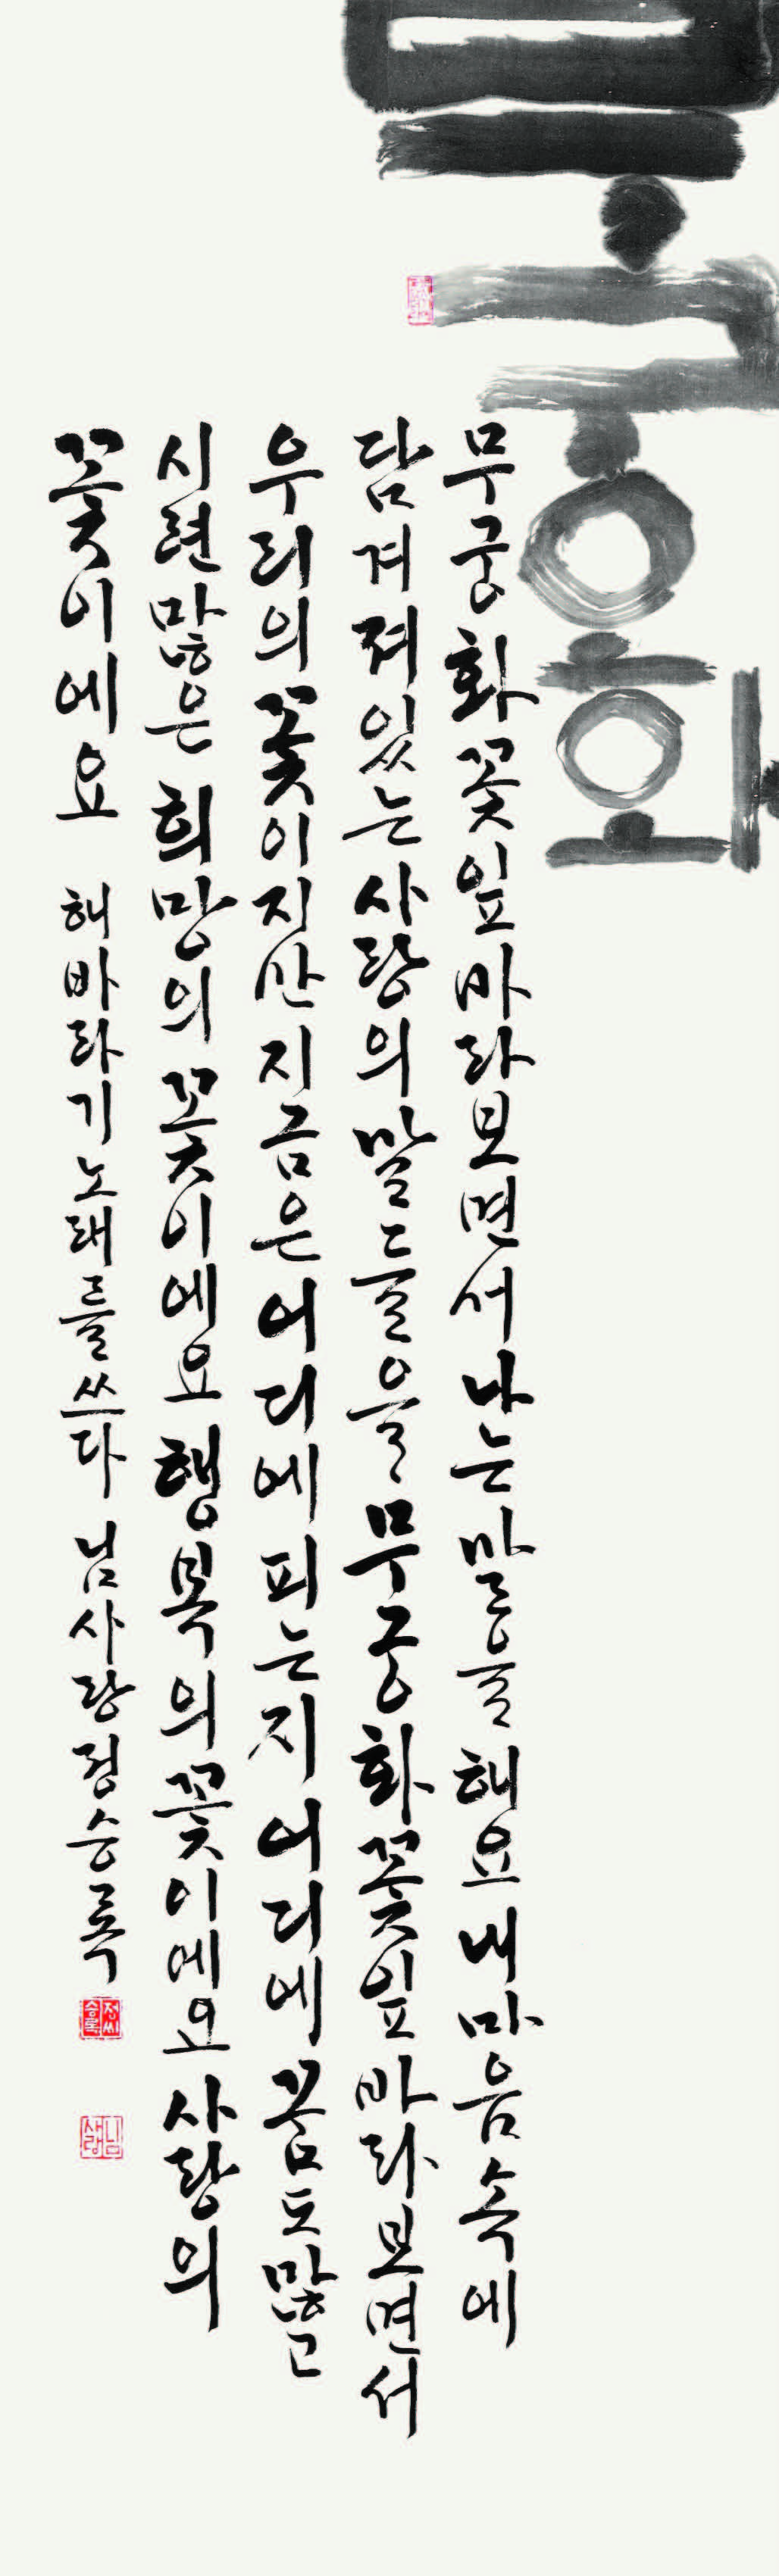 무궁화
무궁화 꽃잎 바라보면서 나는 말을 해요 내 마음 속에
담겨져 있는 사랑의 말들을 무궁화 꽃잎 바라보면서
우리의 꽃이지만 지금은 어디에 피는지 어디에 꿈도 많고
시련 많은 희망의 꽃이에요 행복의 꽃이에요 사랑의
꽃이에요 해바라기 노래를 쓰다 님사랑 정승록